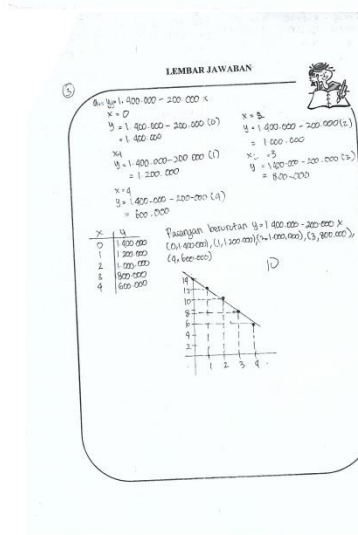 LEMBAR JAWABAN
3
a. y = 1.400.000 - 200.000 x
x = 0
y = 1.400.000 - 200.000 (0)
= 1.400.000
x = 2
y = 1.400.000 - 200.000 (2)
= 1000.000
x 1
y = 1.400.000 - 200 000 (1)
= 1.200.000
x = 3
= 800.000
x = 4
y = 1.400.000 - 200.000 (4)
= 600.000
x y
0 1 400 000
1 1 200 000
2 1.000.000
3 800.000
4 600.000
Pasangan berurutan y = 1 400.000 - 200.000 x
(0,1400.000), (1,1 200.000), (2,1.000.000), (3,800.000),
(4,600.000)
10
14
12
10
8
6
4
2
1 2 3 4